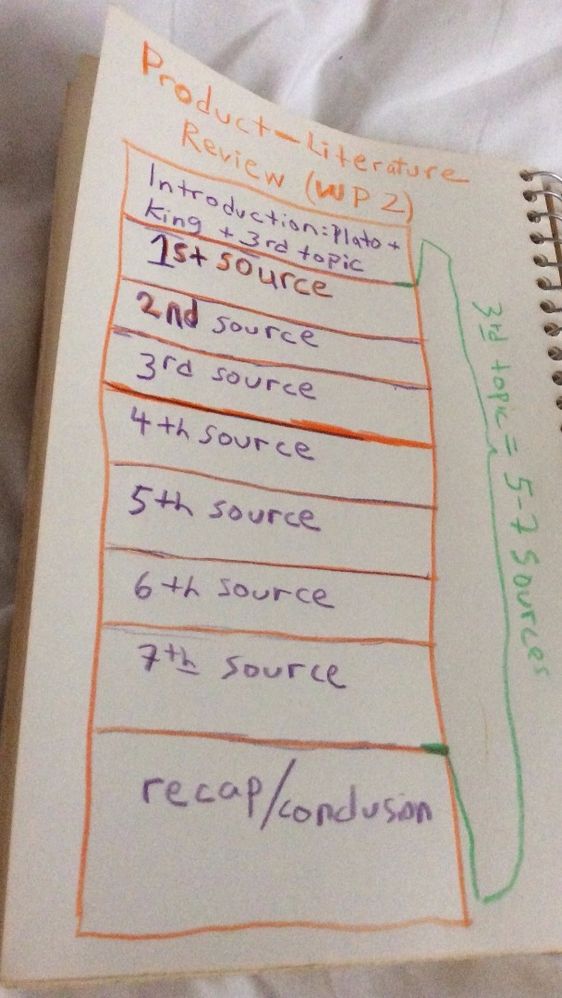 Product-Literature
Review (WP2)
Introduction: Plato +
King + 3rd topic
1st source
2nd source
3rd source
4th source
5th source
6th source
7th source
recap/conclusion
3rd topic = 5-7 Sources